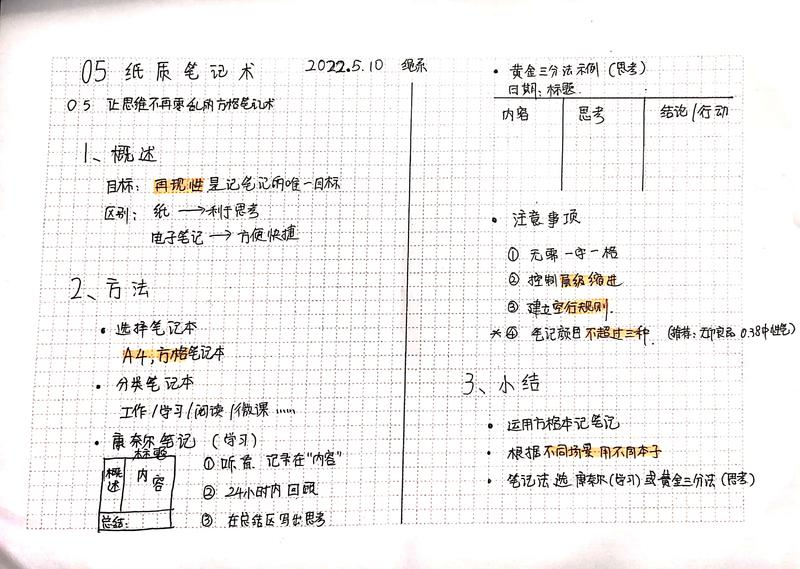 05 纸质笔记术 2022.5.10 绳系
05 让思维不再零乱的方格笔记术
1、概述
目标：再现性是记笔记的唯一目标
区别：纸 → 利于思考
电子笔记 → 方便快捷
2、方法
• 选择笔记本
A4，方格笔记本
• 分类笔记本
工作/学习/阅读/微课……
• 康奈尔笔记（学习）
标题
概述 内容
总结：
① 听、看、记录在“内容”
② 24小时内回顾
③ 在总结区写出思考
• 黄金三分法示例（思考）
日期：标题
内容 思考 结论/行动
• 注意事项
① 无需一字一格
② 控制层级缩进
③ 建立空行规则.
*④ 笔记颜色不超过三种.（推荐：无印良品 0.38中性笔）
3、小结
• 运用方格本记笔记
• 根据不同场景用不同本子
• 笔记法选康奈尔（学习）或黄金三分法（思考）